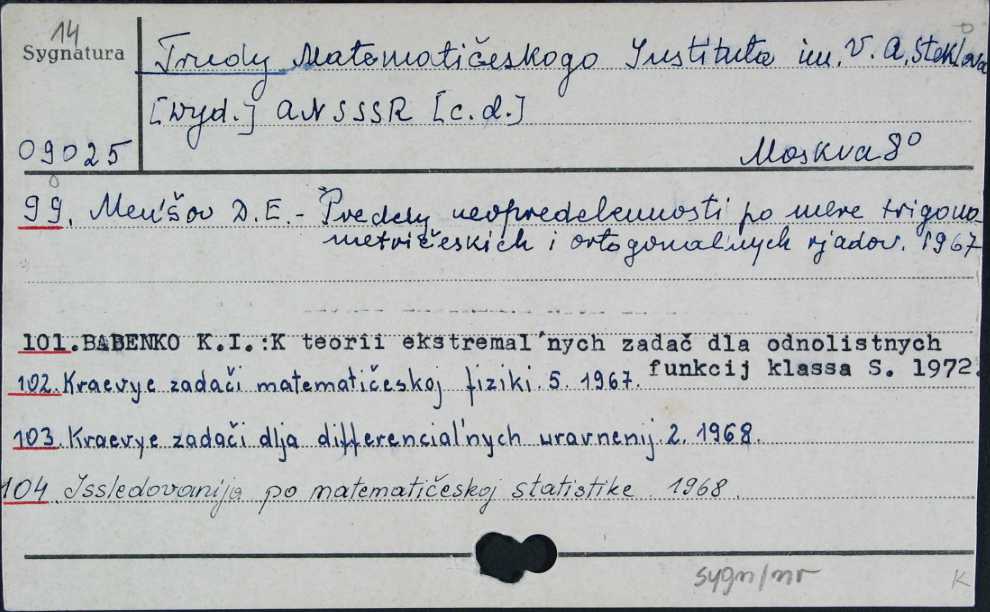 14
Sygnatura
Trudy Matematičeskogo Instituta im. V. A. Steklova
[wyd.] ANSSSR [c.d.]
09025
Moskva 8°
99. Men'šov D.E. - Predely neopredelennosti po mere trigono-
metričeskich i ortogonal'nych rjadov. 1967
101.BABENKO K.I.:K teorii ekstremal'nych zadač dla odnolistnych
funkcij klassa S. 1972.
102. Kraevye zadači matematičeskoj fiziki. 5. 1967.
103. Kraevye zadači dlja differencial'nych uravnenij. 2. 1968.
104. Issledovanija po matematičeskoj statistike. 1968.
sygn/nr
K